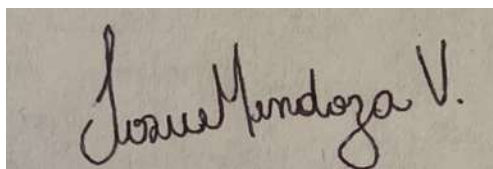 Josue Mendoza V.